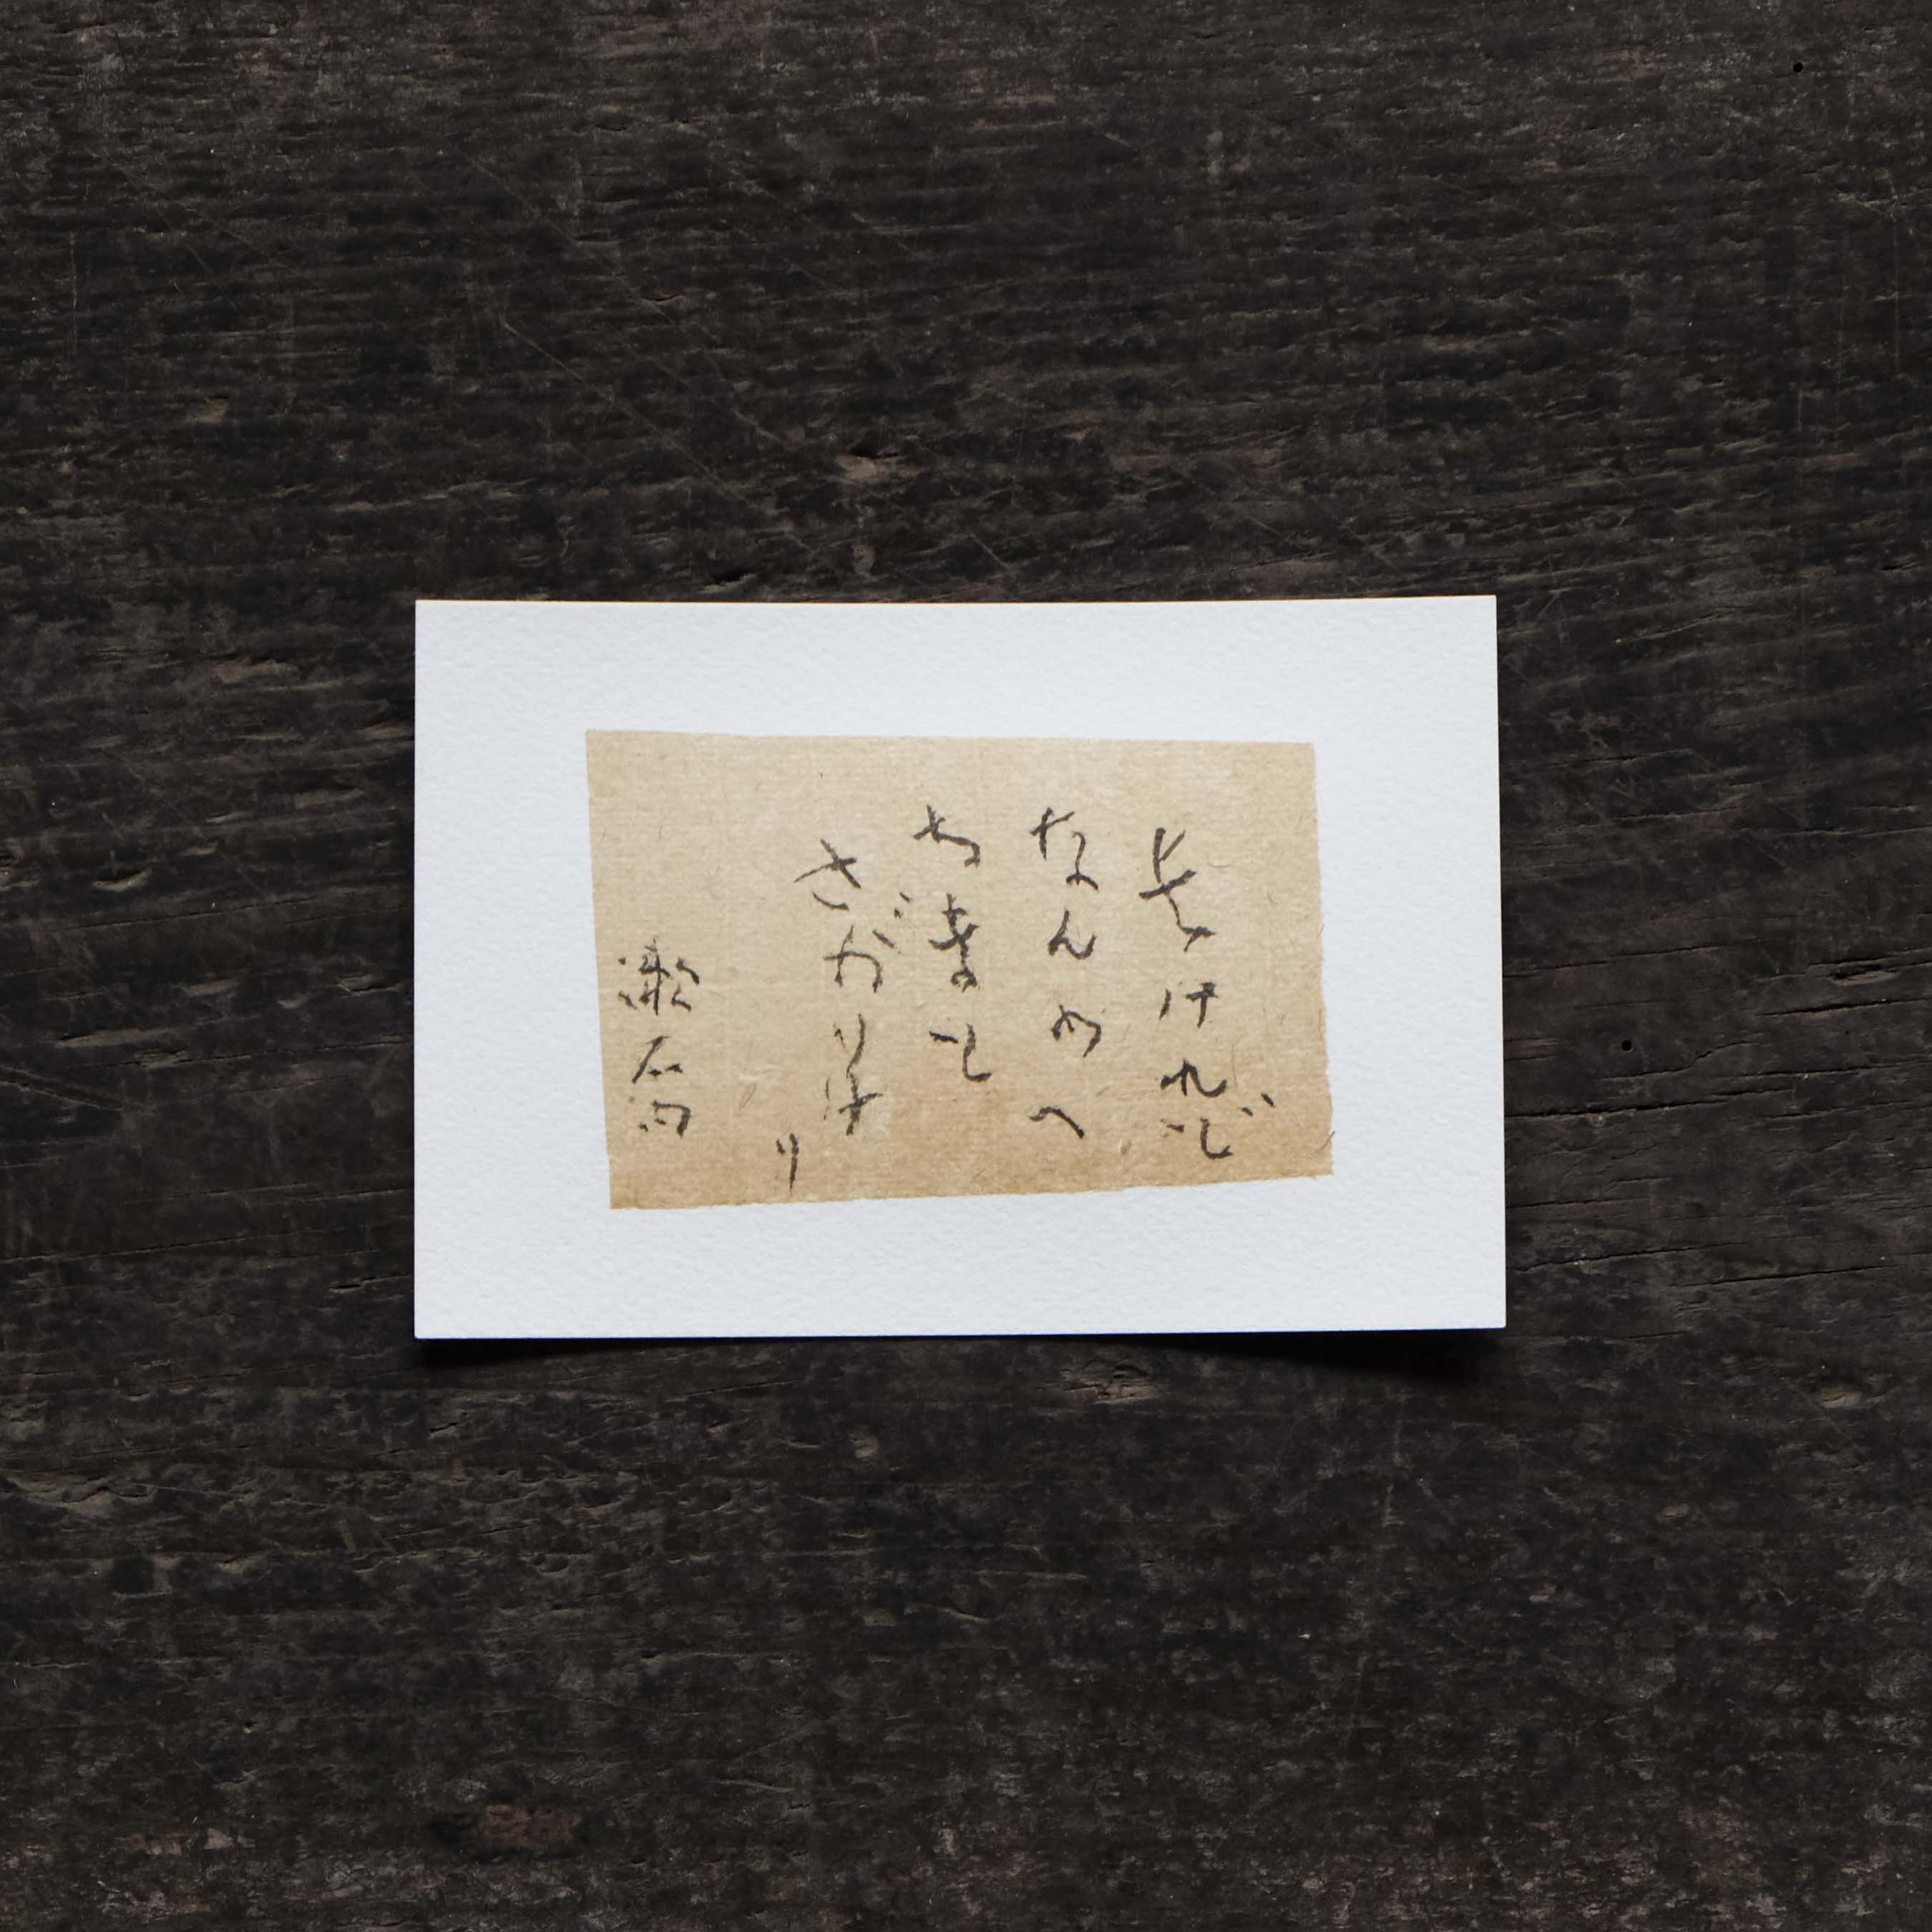 長けれど
なんのへ
ちまと
さがりけ
り
漱石